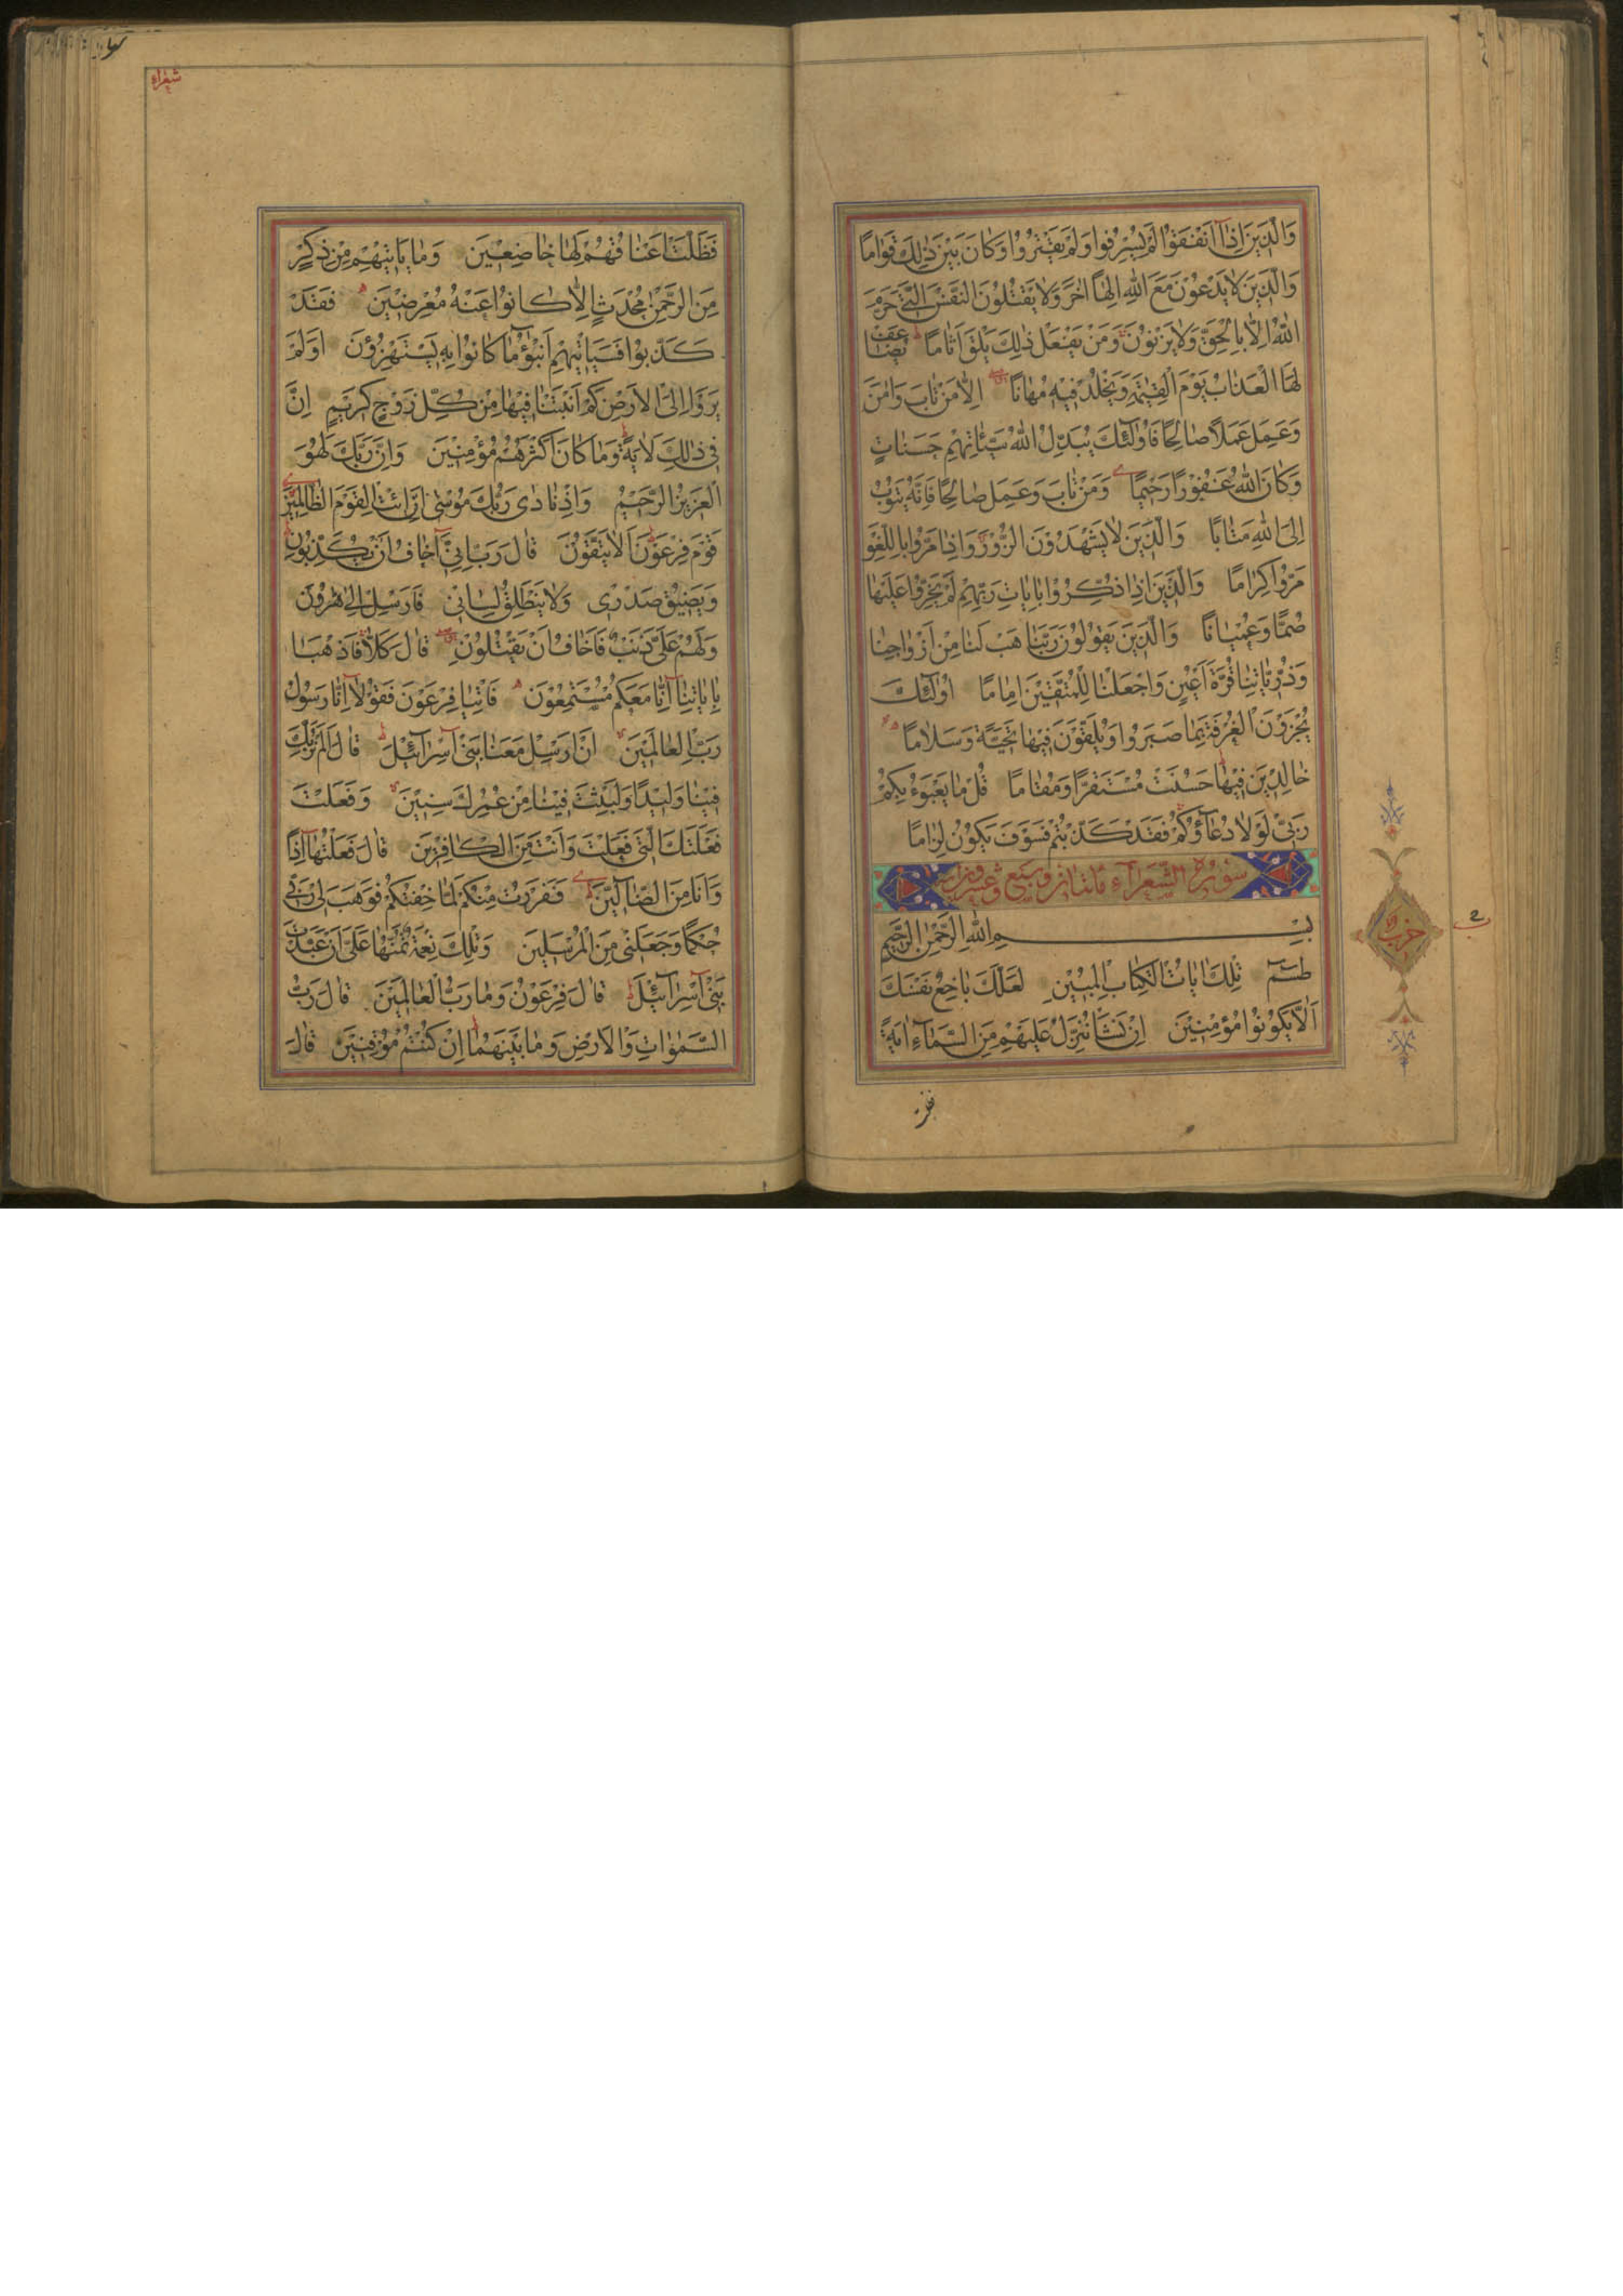 وَالَّذِينَ اِذَٓا اَنْفَقُوا لَمْ يُسْرِفُوا وَلَمْ يَقْتُرُوا وَكَانَ بَيْنَ ذٰلِكَ قَوَامًا
وَالَّذِينَ لَا يَدْعُونَ مَعَ اللهِ اِلٰهًا اٰخَرَ وَلَا يَقْتُلُونَ النَّفْسَ الَّتِي حَرَّمَ
اللهُ اِلَّا بِالْحَقِّ وَلَا يَزْنُونَ وَمَنْ يَفْعَلْ ذٰلِكَ يَلْقَ اَثَامًا يُضَاعَفْ
لَهُ الْعَذَابُ يَوْمَ الْقِيٰمَةِ وَيَخْلُدْ فِيهِ مُهَانًا اِلَّا مَنْ تَابَ وَاٰمَنَ
وَعَمِلَ عَمَلًا صَالِحًا فَاُولٰٓئِكَ يُبَدِّلُ اللهُ سَيِّئَاتِهِمْ حَسَنَاتٍ
وَكَانَ اللهُ غَفُورًا رَحِيمًا وَمَنْ تَابَ وَعَمِلَ صَالِحًا فَاِنَّهُ يَتُوبُ
اِلَى اللهِ مَتَابًا وَالَّذِينَ لَا يَشْهَدُونَ الزُّورَ وَاِذَا مَرُّوا بِاللَّغْوِ
مَرُّوا كِرَامًا وَالَّذِينَ اِذَا ذُكِّرُوا بِاٰيَاتِ رَبِّهِمْ لَمْ يَخِرُّوا عَلَيْهَا
صُمًّا وَعُمْيَانًا وَالَّذِينَ يَقُولُونَ رَبَّنَا هَبْ لَنَا مِنْ اَزْوَاجِنَا
وَذُرِّيَّاتِنَا قُرَّةَ اَعْيُنٍ وَاجْعَلْنَا لِلْمُتَّقِينَ اِمَامًا اُولٰٓئِكَ
يُجْزَوْنَ الْغُرْفَةَ بِمَا صَبَرُوا وَيُلَقَّوْنَ فِيهَا تَحِيَّةً وَسَلَامًا
خَالِدِينَ فِيهَا حَسُنَتْ مُسْتَقَرًّا وَمُقَامًا قُلْ مَا يَعْبَؤُا بِكُمْ
رَبِّي لَوْلَا دُعَآؤُكُمْ فَقَدْ كَذَّبْتُمْ فَسَوْفَ يَكُونُ لِزَامًا
سُورَةُ الشُّعَرَآءِ مائتان وسبع وعشرون آية
بِسْمِ اللهِ الرَّحْمٰنِ الرَّحِيمِ
طٰسٓمٓ تِلْكَ اٰيَاتُ الْكِتَابِ الْمُبِينِ لَعَلَّكَ بَاخِعٌ نَفْسَكَ
اَلَّا يَكُونُوا مُؤْمِنِينَ اِنْ نَشَأْ نُنَزِّلْ عَلَيْهِمْ مِنَ السَّمَآءِ اٰيَةً
حزب
شعراء
فَظَلَّتْ اَعْنَاقُهُمْ لَهَا خَاضِعِينَ وَمَا يَأْتِيهِمْ مِنْ ذِكْرٍ
مِنَ الرَّحْمٰنِ مُحْدَثٍ اِلَّا كَانُوا عَنْهُ مُعْرِضِينَ فَقَدْ
كَذَّبُوا فَسَيَأْتِيهِمْ اَنْبٰٓؤُا مَا كَانُوا بِهِ يَسْتَهْزِؤُنَ اَوَلَمْ
يَرَوْا اِلَى الْاَرْضِ كَمْ اَنْبَتْنَا فِيهَا مِنْ كُلِّ زَوْجٍ كَرِيمٍ اِنَّ
فِي ذٰلِكَ لَاٰيَةً وَمَا كَانَ اَكْثَرُهُمْ مُؤْمِنِينَ وَاِنَّ رَبَّكَ لَهُوَ
الْعَزِيزُ الرَّحِيمُ وَاِذْ نَادٰى رَبُّكَ مُوسٰٓى اَنِ ائْتِ الْقَوْمَ الظَّالِمِينَ
قَوْمَ فِرْعَوْنَ اَلَا يَتَّقُونَ قَالَ رَبِّ اِنِّٓي اَخَافُ اَنْ يُكَذِّبُونِ
وَيَضِيقُ صَدْرِي وَلَا يَنْطَلِقُ لِسَانِي فَاَرْسِلْ اِلٰى هٰرُونَ
وَلَهُمْ عَلَيَّ ذَنْبٌ فَاَخَافُ اَنْ يَقْتُلُونِ قَالَ كَلَّا فَاذْهَبَا
بِاٰيَاتِنَٓا اِنَّا مَعَكُمْ مُسْتَمِعُونَ فَأْتِيَا فِرْعَوْنَ فَقُولَٓا اِنَّا رَسُولُ
رَبِّ الْعَالَمِينَ اَنْ اَرْسِلْ مَعَنَا بَنِٓي اِسْرَآئِيلَ قَالَ اَلَمْ نُرَبِّكَ
فِينَا وَلِيدًا وَلَبِثْتَ فِينَا مِنْ عُمُرِكَ سِنِينَ وَفَعَلْتَ
فَعْلَتَكَ الَّتِي فَعَلْتَ وَاَنْتَ مِنَ الْكَافِرِينَ قَالَ فَعَلْتُهَٓا اِذًا
وَاَنَا مِنَ الضَّآلِّينَ فَفَرَرْتُ مِنْكُمْ لَمَّا خِفْتُكُمْ فَوَهَبَ لِي رَبِّي
حُكْمًا وَجَعَلَنِي مِنَ الْمُرْسَلِينَ وَتِلْكَ نِعْمَةٌ تَمُنُّهَا عَلَيَّ اَنْ عَبَّدْتَ
بَنِٓي اِسْرَآئِيلَ قَالَ فِرْعَوْنُ وَمَا رَبُّ الْعَالَمِينَ قَالَ رَبُّ
السَّمٰوَاتِ وَالْاَرْضِ وَمَا بَيْنَهُمَا اِنْ كُنْتُمْ مُوقِنِينَ قَالَ